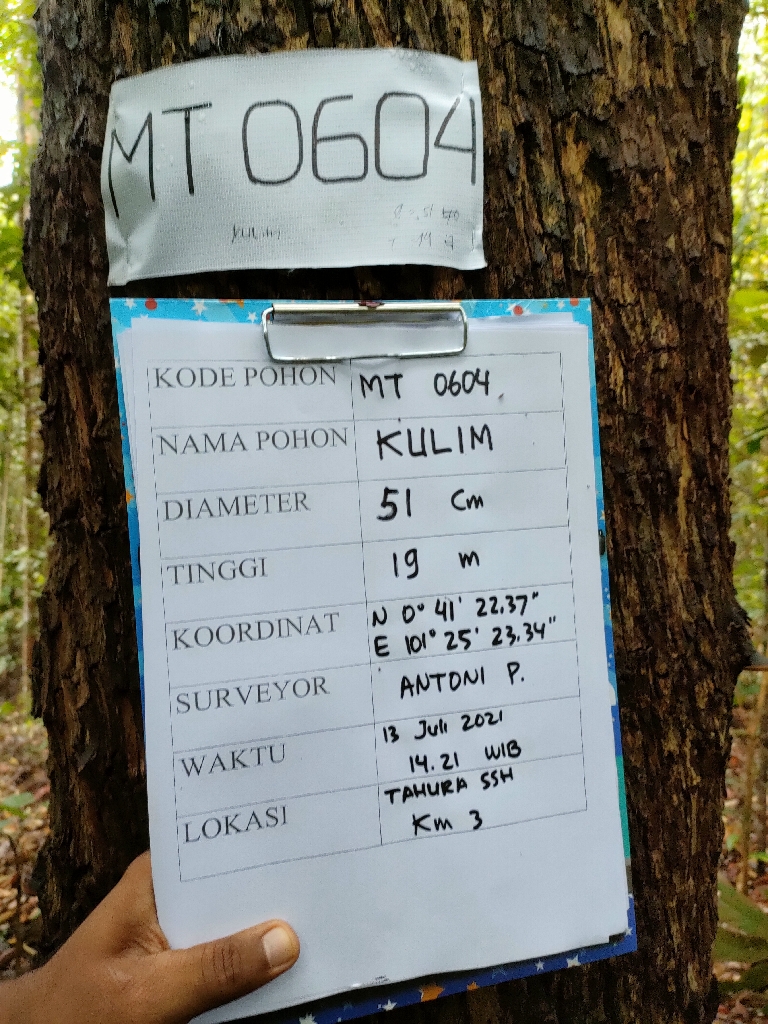 MT 0604
KULIM
KODE POHON MT 0604
NAMA POHON KULIM
DIAMETER 51 Cm
TINGGI 19 m
KOORDINAT N 0° 41' 22.37"
E 101° 25' 23.34"
SURVEYOR ANTONI P.
WAKTU 13 Juli 2021
14.21 WIB
LOKASI TAHURA SSH
Km 3